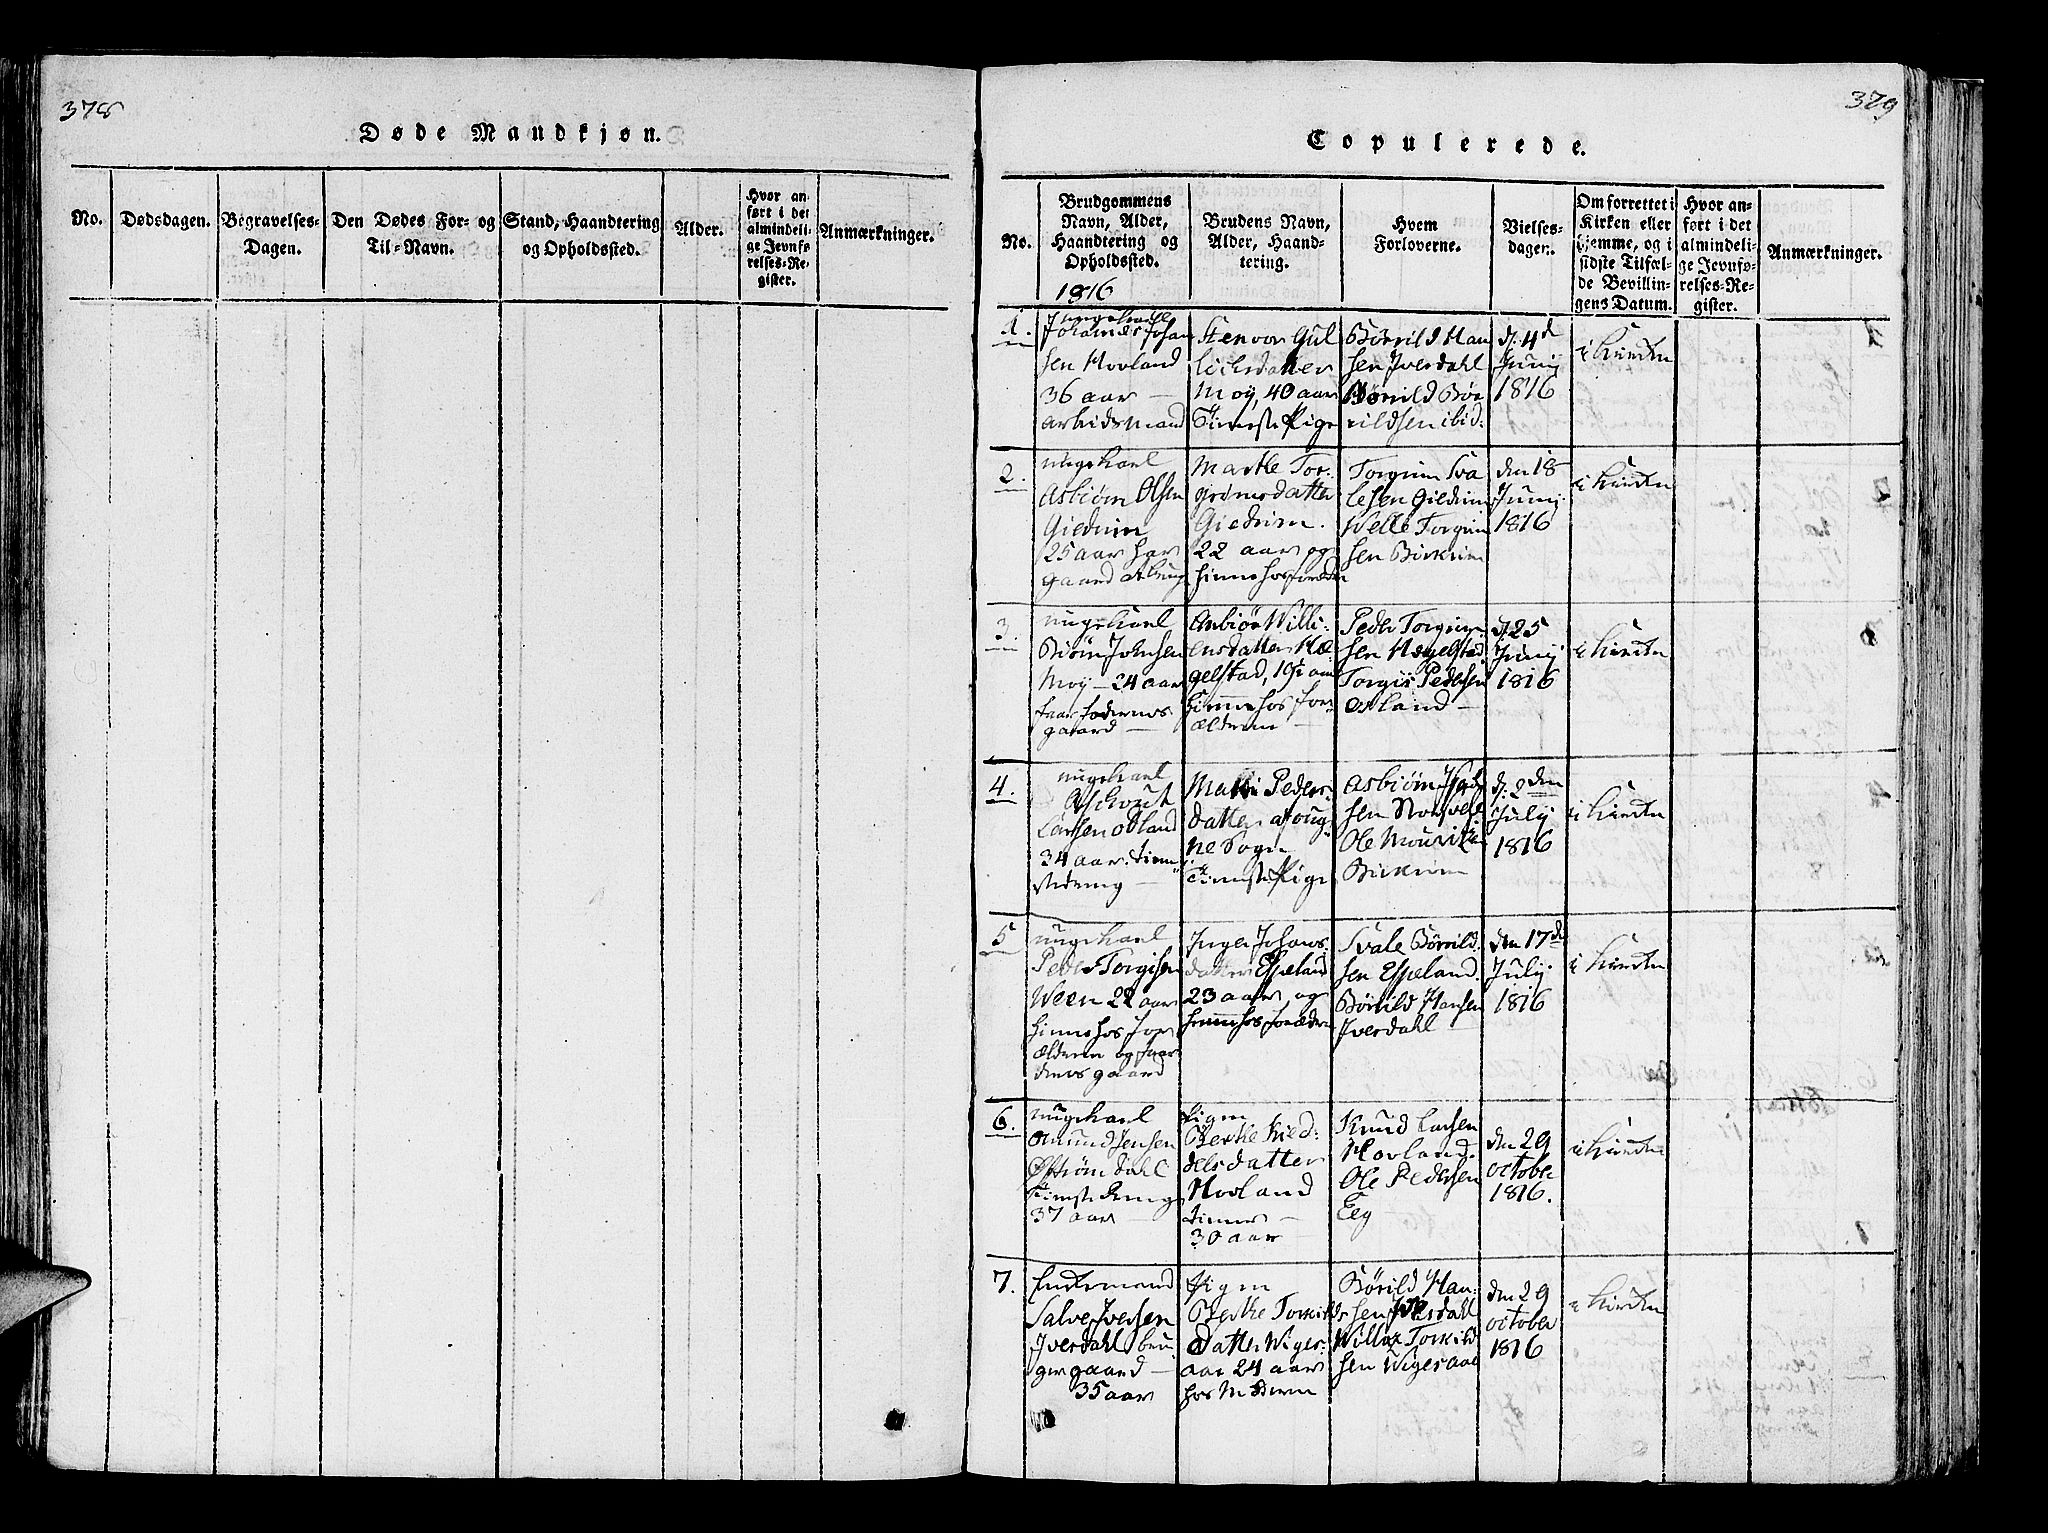 378
Døde Mandkjøn.
No.
Dødsdagen.
Begravelses-
Dagen.
Den Dødes For- og
Til-Navn.
Stand, Haandtering
og Opholdssted.
Alder.
Hvor an-
ført i det
almindeli-
ge Jevnfø-
relses-Re-
gister.
Anmærkninger.
379
Copulerede.
No.
Brudgommens
Navn, Alder,
Haandtering og
Opholdssted.
1816
Brudens Navn,
Alder, Haand-
tering.
Hvem
Forloverne.
Vielses-
dagen.
Om forrettet i
Kirken eller
Hjemme, og i
sidste Tilfæl-
de Bevillin-
gens Datum.
Hvor an-
ført i det
almindeli-
ge Jevnfø-
relses-Re-
gister.
Anmærkninger.
1.
ungekarl
Johannes Johan
sen Hovland
36 aar
arbeidsmand
Stenvor Gul
leichsdatter
Moÿ, 40 aar
Tieneste Pige
Børrild Han
sen Iverdahl
Børrild Bør
rildsen ibid:
d: 4d
Junij
1816
i Kirken
2.
ungekarl
Asbiørn Olsen
Giedrim
25 aar har
gaard at bruge
Marthe Tor:
grimsdatter
Giedrim.
22 aar og
hiemme hos forældre
Torgrim Sva
lesen Giedrim
Torgrim
sen Birkrim
den 18
Junij
1816
i Kirken
3.
ungekarl
Biørn Johnsen
Moÿ — 24 aar
faar faderens
gaard —
Willi:
ensdatter Hæ
gelstad, 19½ aar
hiemme hos for
ældrene —
Peder Torgrim
sen Hegelstad
Torgiis Pedersen
Osland —
d: 25
Junij
1816
i Kirken
4.
ungekarl
Larsen
34 aar. tiene
stedreng —
Peders:
datter
ne Sogn
Tieneste Pige
Asbiørn
sen
Ole Mouritz
Birkrim
d: 2den
Julÿ
1816
i Kirken
5
ungekarl
Peder Torgisen
Ween 22 aar
hiemme hos for
ældrene og faar
deres gaard
Inger Johans
datter Espeland
23 aar og
hiemme hos forældre
Svale Børrild
sen Espeland
Børrild Hansen
Iverdahl —
den 17de
Julÿ.
1816
i Kirken
6.
ungekarl
Omund Jensen
Ørstrøm dahl
Tieneste dreng
37 aar —
Pigen
Berthe
delsdatter
Hovland
tiener —
30 aar
Knud Larsen
Hovland.
Ole Pedersen
Eeg
den 29
october
1816.
i Kirken
7.
Enkemand
Salve Iversen
Iverdahl bru
ger gaard —
35 aar
Pigen
Berthe Torkilds
datter Wiges:
aae 24 aar
hos Moderen
Børrild Han:
sen Iverdahl
Torkild
sen Wigesaae
den 29
october
1816
i Kirken